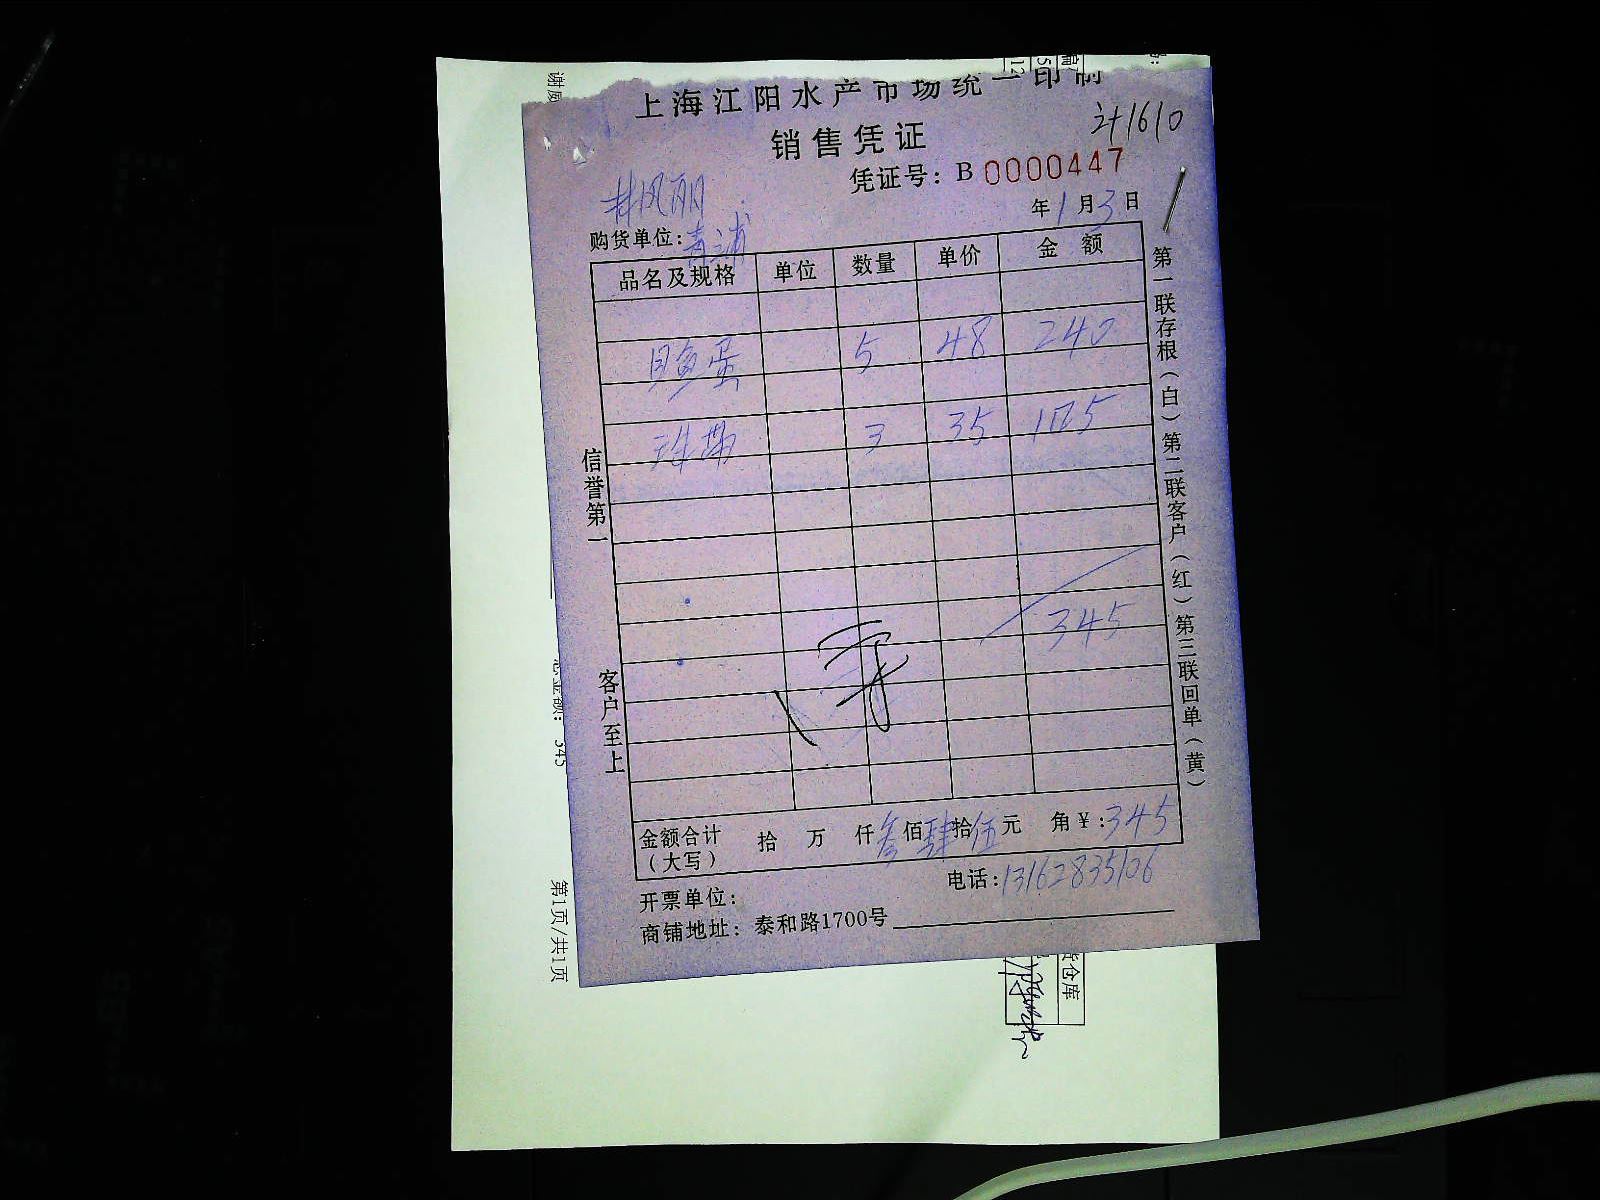 上海江阳水产市场统一印制
计1610
销售凭证
凭证号：B 0000447
井风丽
年1月3日
购货单位：青浦
品名及规格 单位 数量 单价 金额
目鱼蛋 5 48 240
珠带 3 35 105
345
金额合计（大写） 拾 万 仟 叁佰肆拾伍元 角￥：345
电话：13162835106
开票单位：
商铺地址：泰和路1700号
信誉第一 客户至上
第一联存根（白）第二联客户（红）第三联回单（黄）
总金额：345
第1页/共1页
货仓库